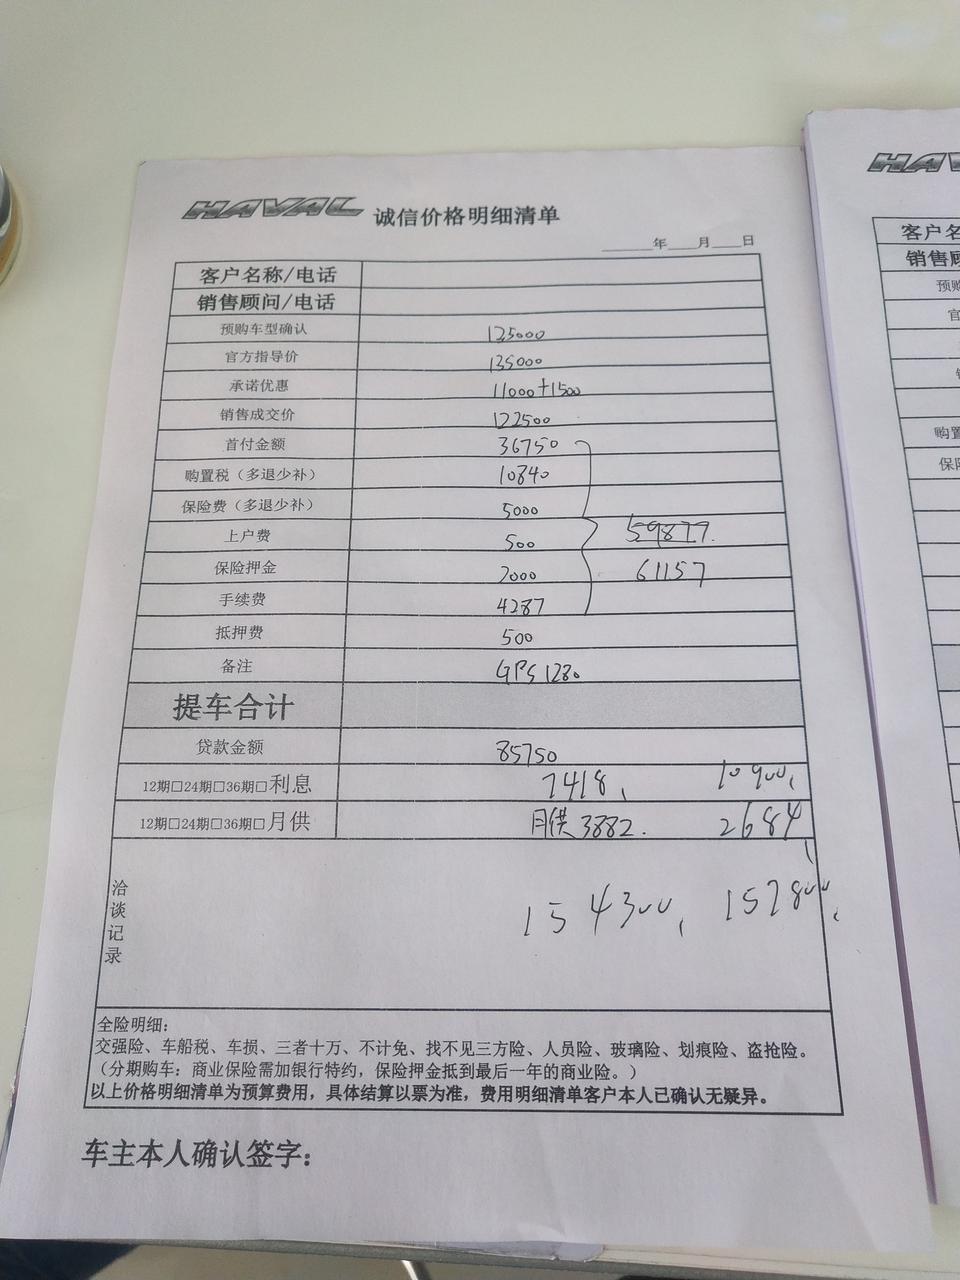 HAVAL 诚信价格明细清单
年 月 日
客户名称/电话
销售顾问/电话
预购车型确认 125000
官方指导价 135000
承诺优惠 11000+1500
销售成交价 122500
首付金额 36750
购置税（多退少补） 10840
保险费（多退少补） 5000
上户费 500 59877.
保险押金 2000 61157
手续费 4287
抵押费 500
备注 GPS 1280
提车合计
贷款金额 85750
12期□24期□36期□利息 7418, 10900,
12期□24期□36期□月供 月供 3882. 2684,
洽谈记录 154300, 157800,
全险明细：
交强险、车船税、车损、三者十万、不计免、找不见三方险、人员险、玻璃险、划痕险、盗抢险。
（分期购车：商业保险需加银行特约，保险押金抵到最后一年的商业险。）
以上价格明细清单为预算费用，具体结算以票为准，费用明细清单客户本人已确认无疑异。
车主本人确认签字：
客户名
销售顾
预购
官
购置
保险